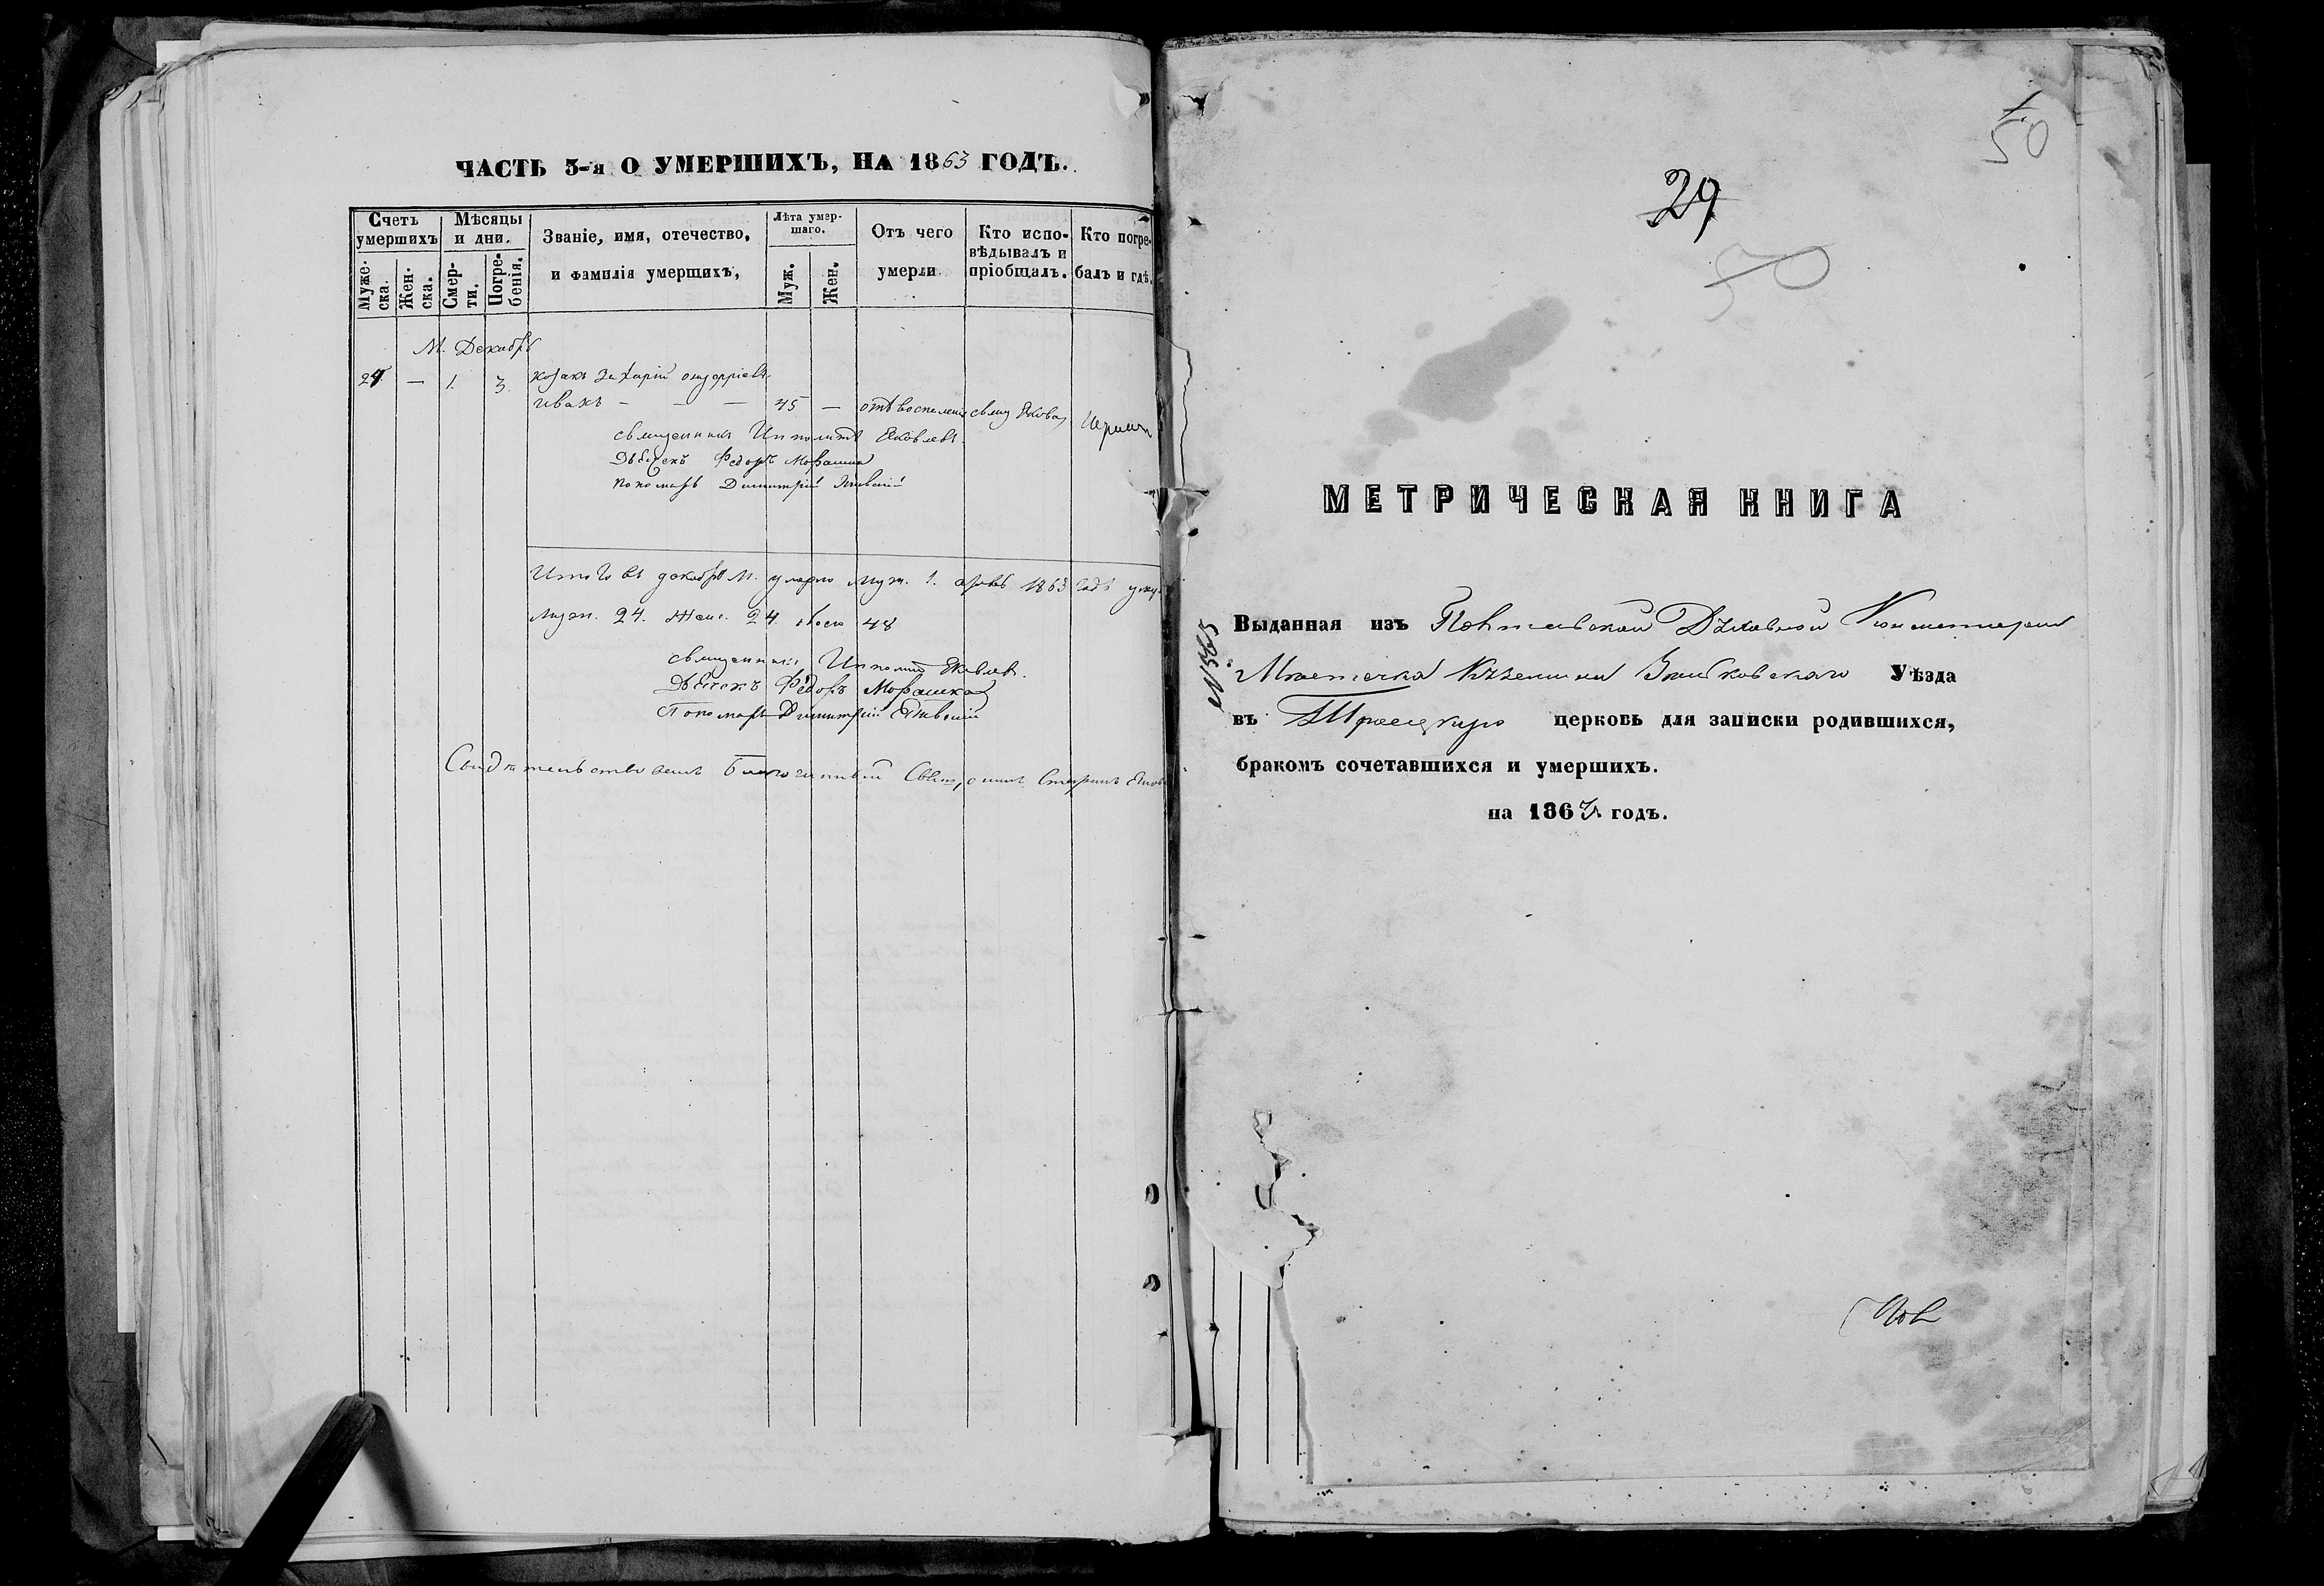 ЧАСТЬ 3-я О УМЕРШИХЪ, НА 1863 ГОДЪ.
Счетъ умершихъ
Мѣсяцы и дни.
Званіе, имя, отечество, и фамилія умершихъ,
Лѣта умер-шаго.
Отъ чего умерли
Кто испо-вѣдывалъ и пріобщалъ.
Кто погре-балъ и гдѣ.
Муже-ска.
Жен-ска.
Смер-ти.
Погре-бенія.
Муж.
Жен.
М. Декабрь
24 — 1. 3. козакъ Захарій
ивахъ — — — 45 — отъ воспаленія свящ Яковл
священникъ Иполитъ Яковлевъ
Дьячекъ Федоръ
пономарь Димитрій
Итого въ декабрѣ М. умерло муж. 1. 1863
Муж. 24. Жен. 24. 48
священникъ Иполитъ Яковлев.
Дьячекъ Федоръ
Пономарь Димитрій
Свидѣтельствовалъ Благочинный
50
29
50
МЕТРИЧЕСКАЯ КНИГА
Выданная изъ Полтавской Духовной Консисторіи
Мѣстечка Куземина Зеньковскаго Уѣзда
въ Троецкую церковь для записки родившихся,
бракомъ сочетавшихся и умершихъ.
на 186 годъ.
№ 565